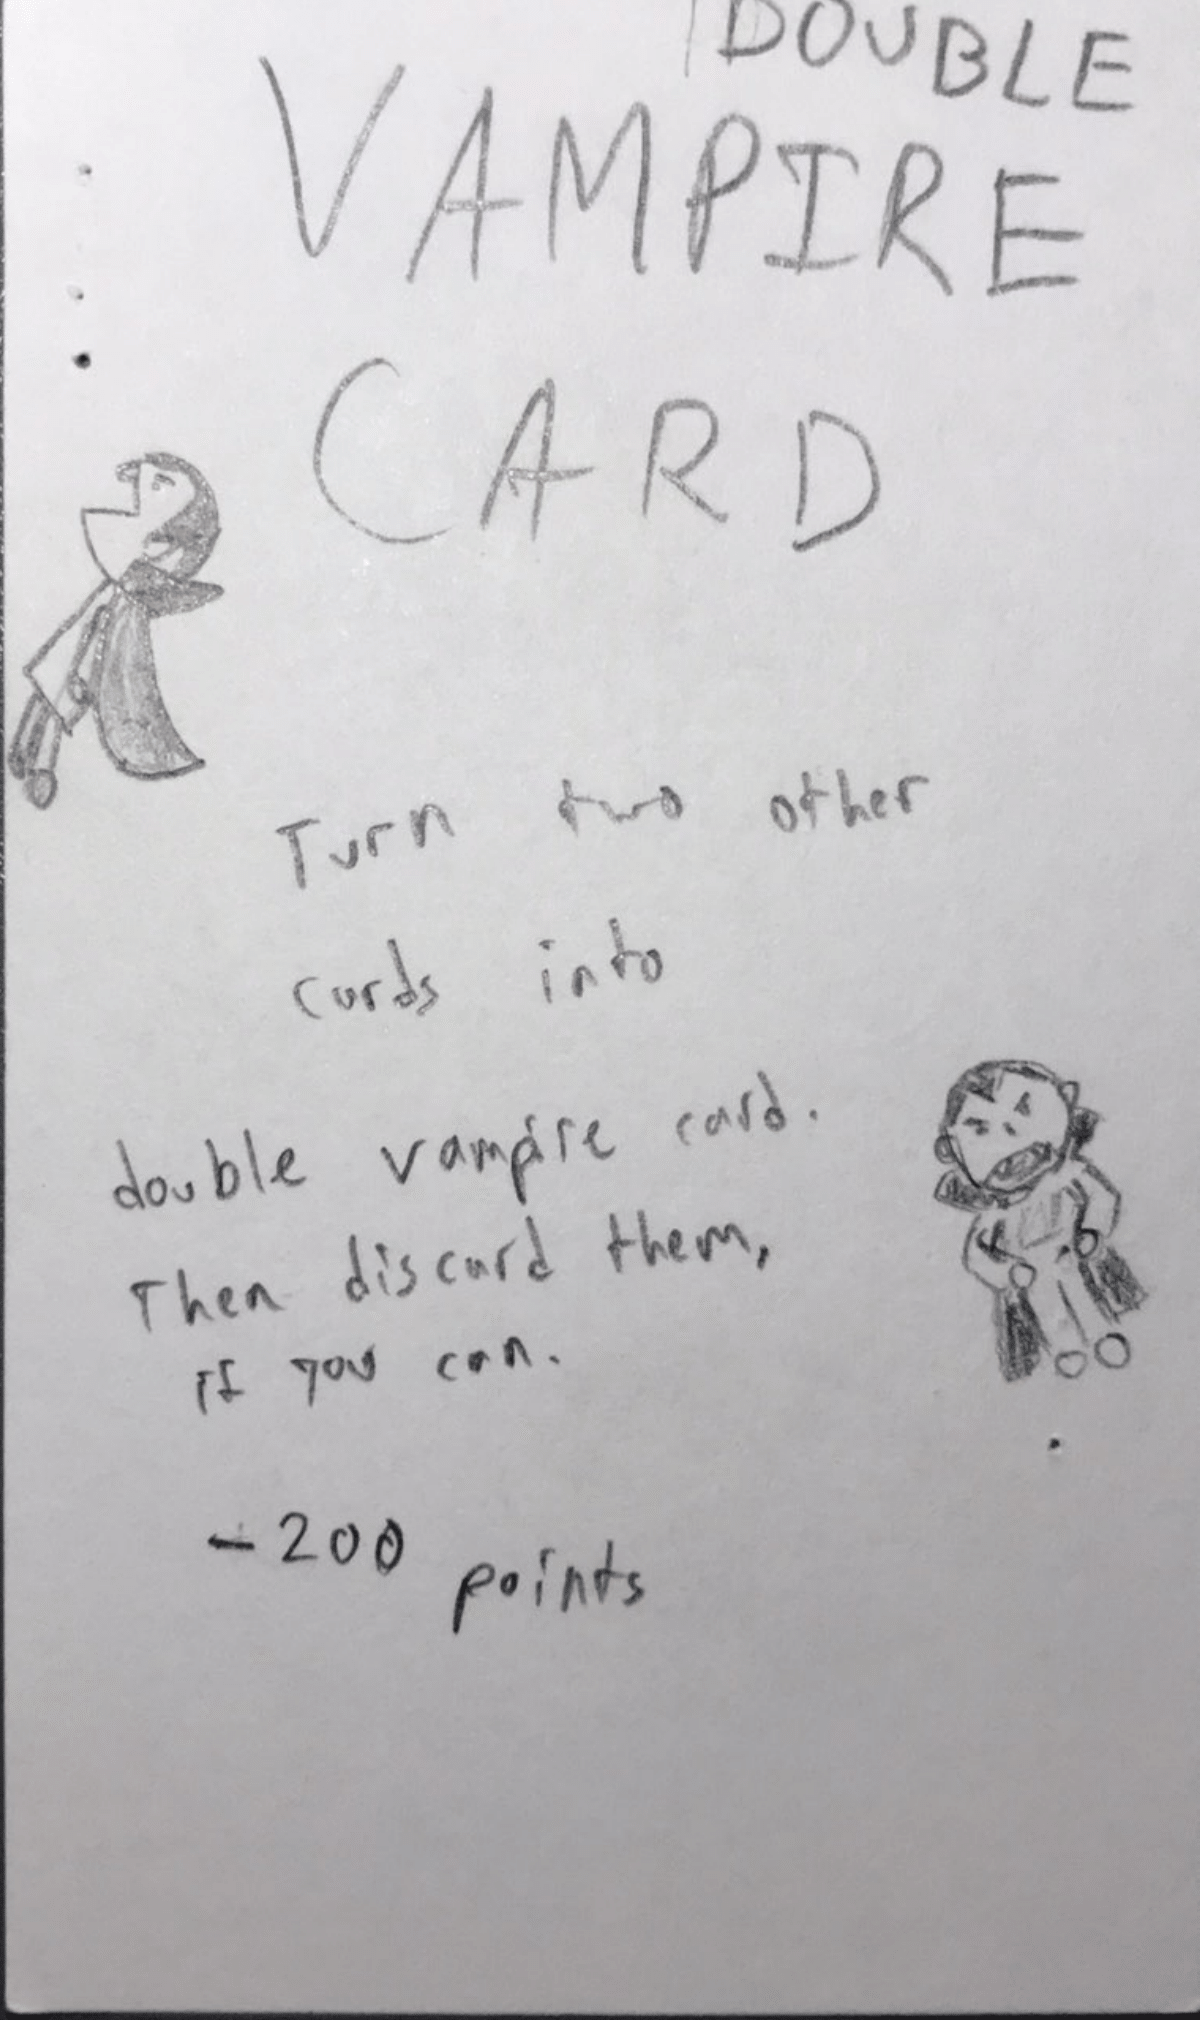 DOUBLE
VAMPIRE
CARD
Turn two other
cards into
double vampire card.
Then discard them,
if you can.
-200 points